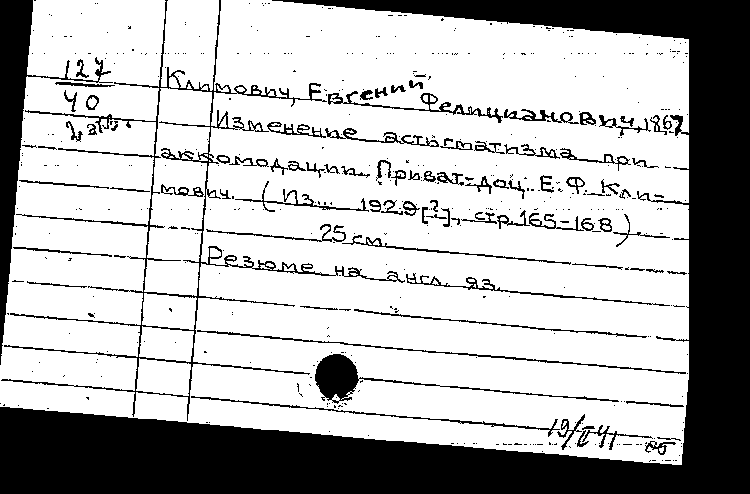 127
40
Климович, Евгений
Фелицианович, 1867
Изменение астигматизма при
аккомодации. Приват-доц. Е. Ф. Кли-
мович. (Из... 1929[?], стр. 165-168).
25 см.
Резюме на англ. яз.